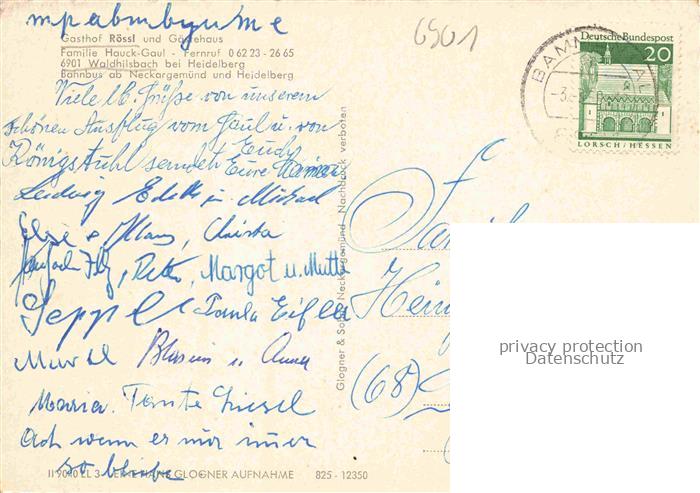 Gasthof Rössl und Gästehaus
Familie Hauck-Gaul - Fernruf 0 62 23 - 26 65
6901 Waldhilsbach bei Heidelberg
Bahnbus ab Neckargemünd und Heidelberg
6901
Deutsche Bundespost
20
LORSCH / HESSEN
BAMM
Viele lb. Grüße von unserem
schönen Ausflug vom Gaul u. von
Königstuhl sendet Eure
Ludwig Edith u. Michael
Else + Klaus, Christa
Margot u. Mutti
Seppl Paula Eifler
u Anna
Maria. Tante Liesel
Ach wenn es nur immer
so bliebe
II 9040 LL 3 HANS GLOGNER AUFNAHME 825 - 12350
Glogner & Sohn, Neckargemünd · Nachdruck verboten
(68)
privacy protection
Datenschutz